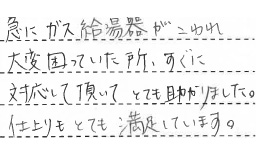 急にガス給湯器がこわれ
大変困っていた所、すぐに
対応して頂いてとても助かりました。
仕上りもとても満足しています。